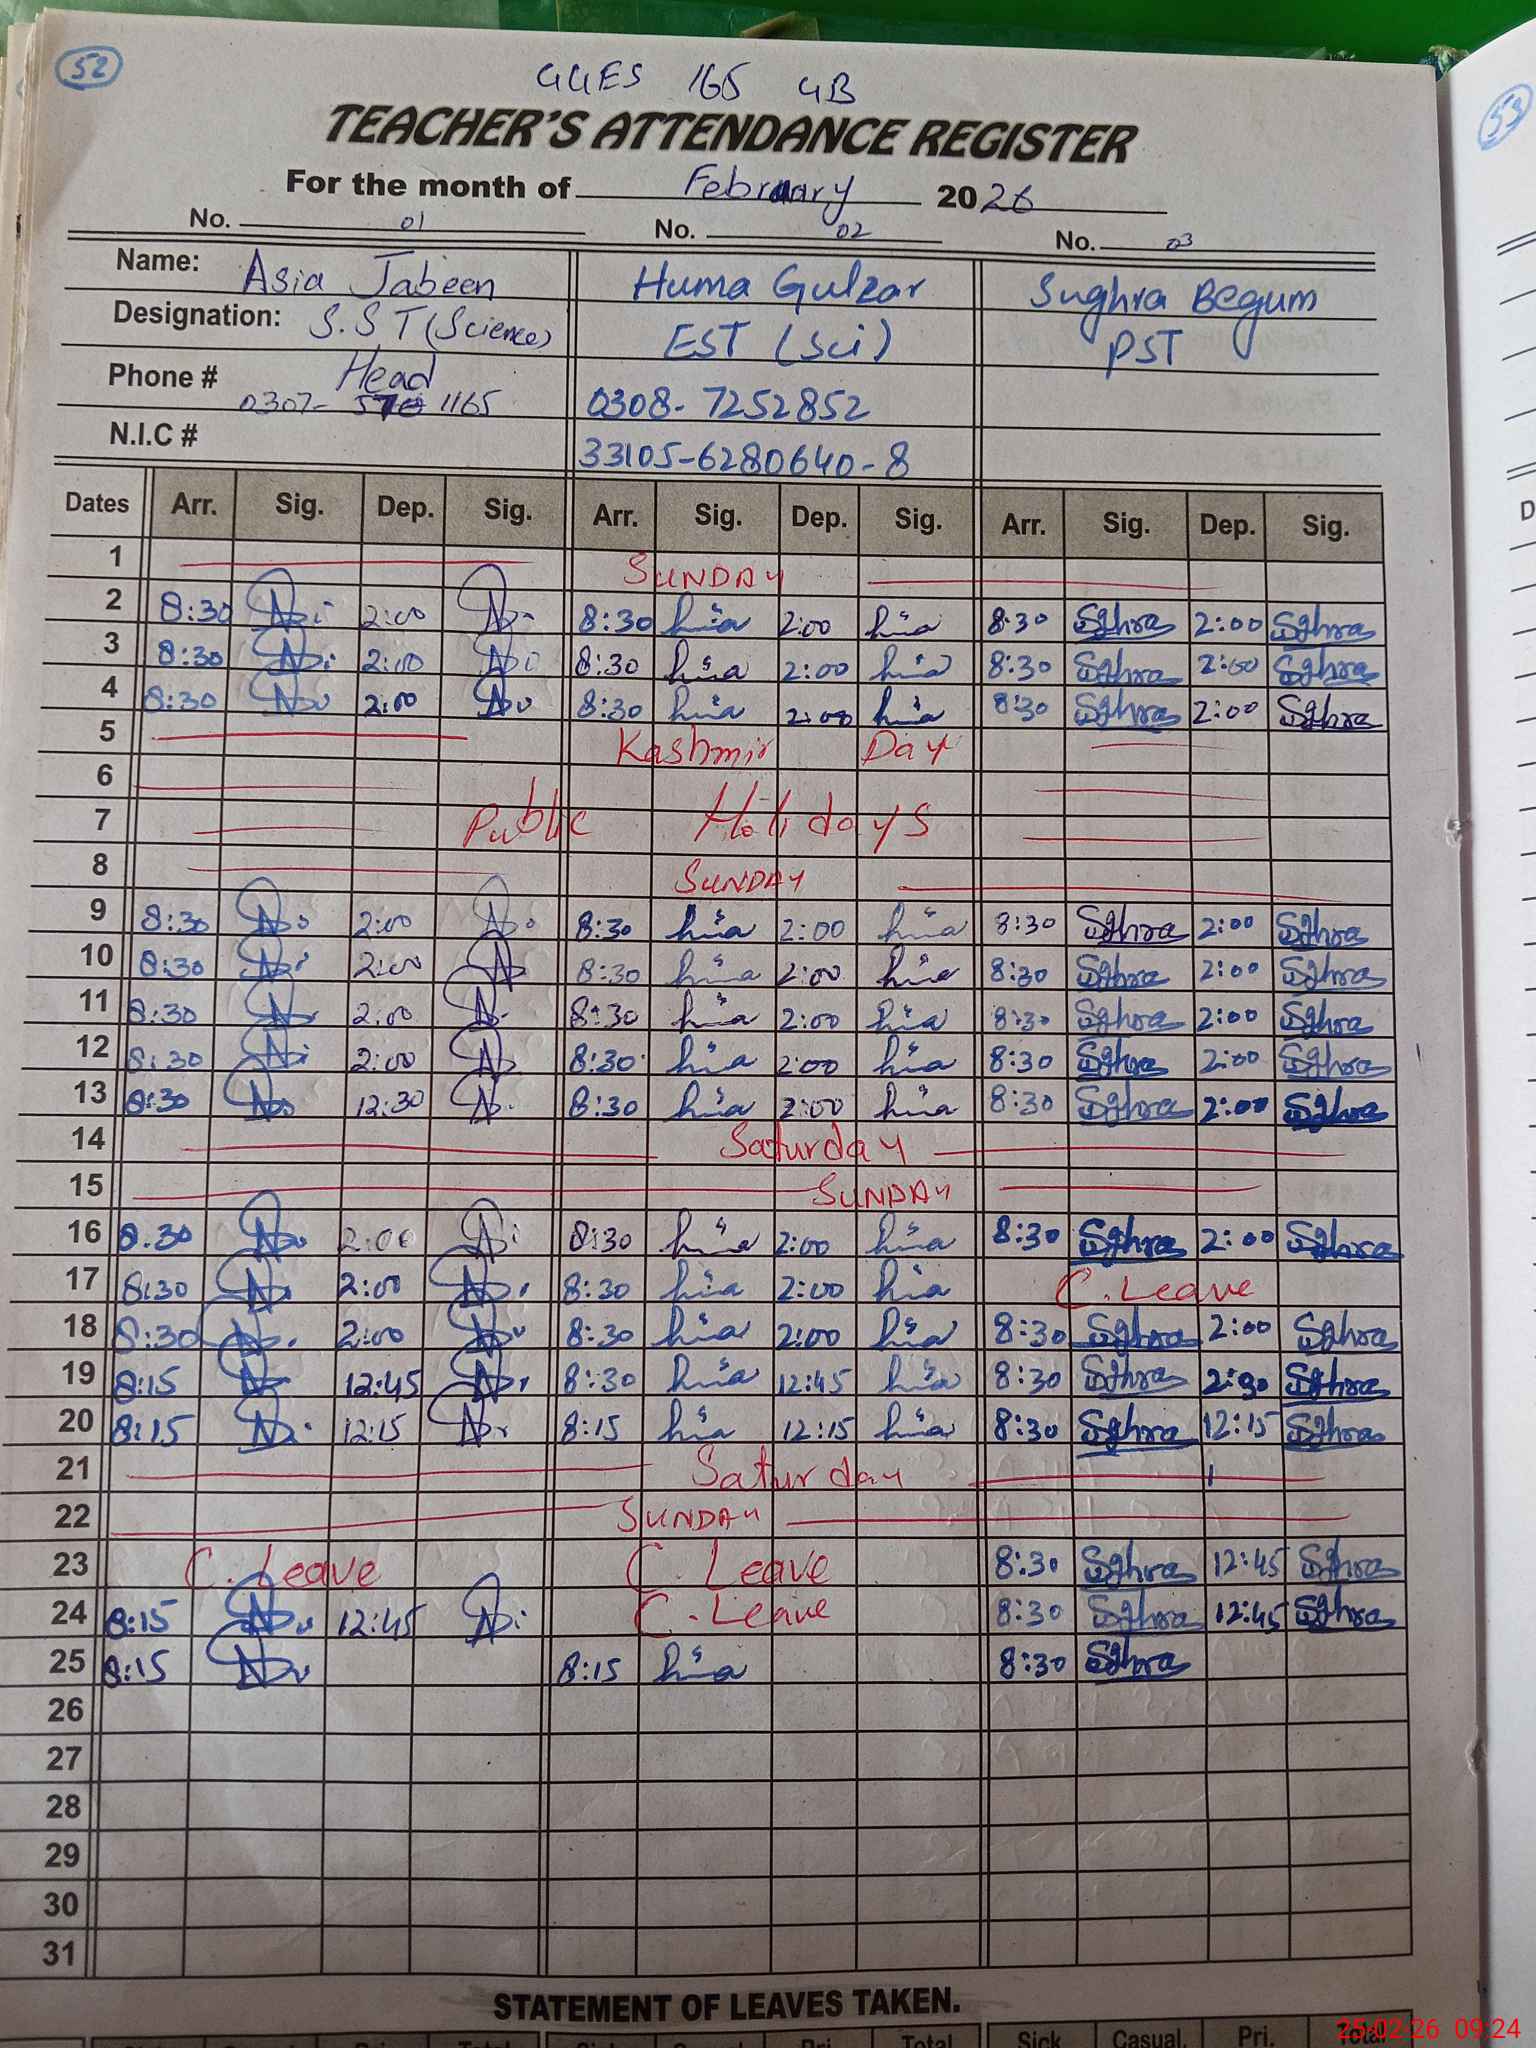 52
GGES 165 GB
TEACHER'S ATTENDANCE REGISTER
For the month of February 2026
No. 01 No. 02 No. 03
Name: Asia Jabeen Huma Gulzar Sughra Begum
Designation: S.S T (Science) EST (Sci) PST
Head
Phone # 0307- 1165 0308-7252852
N.I.C # 33105-6280640-8
Dates Arr. Sig. Dep. Sig. Arr. Sig. Dep. Sig. Arr. Sig. Dep. Sig.
1 SUNDAY
2 8:30 2:00 8:30 2:00 8:30 Sghra 2:00 Sghra
3 8:30 2:00 8:30 2:00 8:30 Sghra 2:00 Sghra
4 8:30 2:00 8:30 2:00 8:30 Sghra 2:00 Sghra
5 Kashmir Day
6
7 Public Holidays
8 SUNDAY
9 8:30 2:00 8:30 2:00 8:30 Sghra 2:00 Sghra
10 8:30 2:00 8:30 2:00 8:30 Sghra 2:00 Sghra
11 8:30 2:00 8:30 2:00 8:30 Sghra 2:00 Sghra
12 8:30 2:00 8:30 2:00 8:30 Sghra 2:00 Sghra
13 8:30 12:30 8:30 2:00 8:30 Sghra 2:00 Sghra
14 Saturday
15 SUNDAY
16 8:30 2:00 8:30 2:00 8:30 Sghra 2:00 Sghra
17 8:30 2:00 8:30 2:00 C. Leave
18 8:30 2:00 8:30 2:00 8:30 Sghra 2:00 Sghra
19 8:15 12:45 8:30 12:45 8:30 Sghra Sghra
20 8:15 12:15 8:15 12:15 8:30 Sghra 12:15 Sghra
21 Saturday
22 SUNDAY
23 C. Leave C. Leave 8:30 Sghra 12:45 Sghra
24 8:15 12:45 C. Leave 8:30 Sghra 12:45 Sghra
25 8:15 8:15 8:30 Sghra
26
27
28
29
30
31
STATEMENT OF LEAVES TAKEN.
Total Sick Casual. Pri. Total
25-02-26 09:24
53